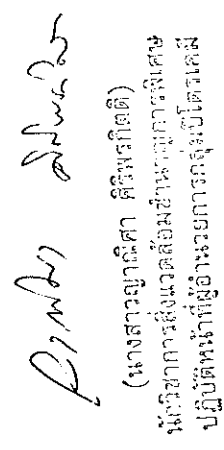 (นางสาวญาณิศา ศิริพรกิตติ)
นักวิชาการสิ่งแวดล้อมชำนาญการพิเศษ
ปฏิบัติหน้าที่ผู้อำนวยการกลุ่มปิโตรเคมี